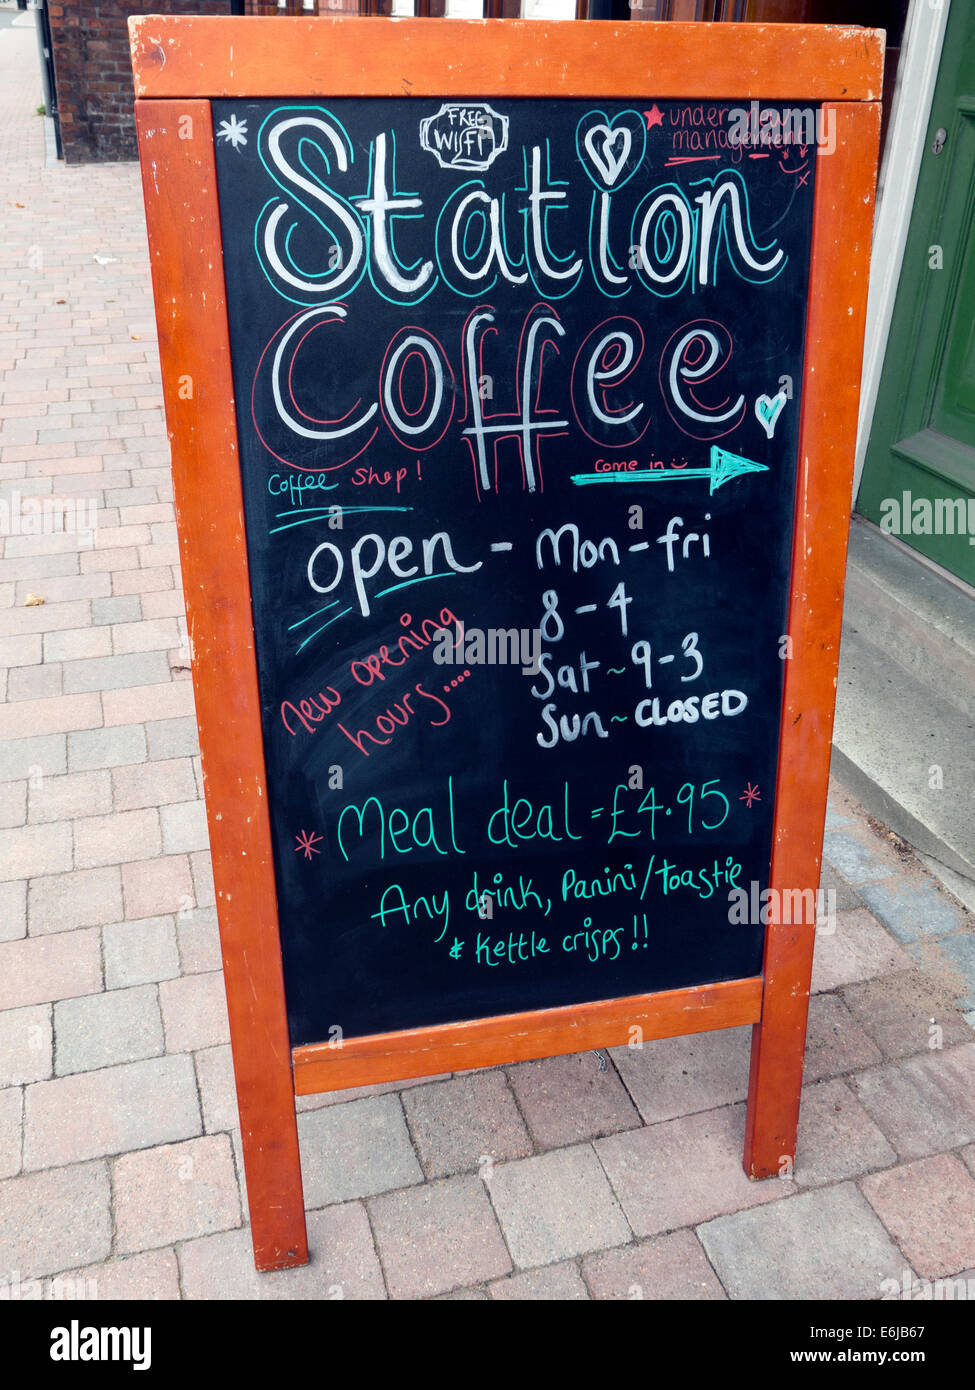 FREE
WIFI
under new
management
x
Station
Coffee
Coffee Shop!
Come in
open - Mon-fri
8-4
Sat ~ 9-3
Sun ~ CLOSED
New opening
hours....
* Meal deal = £4.95 *
Any drink, Panini/toastie
& Kettle crisps!!
alamy
Image ID: E6JB67
www.alamy.com